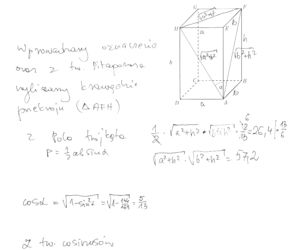 Wprowadzamy oznaczenia
oraz z tw. Pitagorasa
wyliczamy krawędzie
przekroju (△AFH)
z Pola trójkąta
P = 1/2 ab sinα
1/2 · √(a²+h²) · √(b²+h²) · 12/13 = 26,4 | · 13/6
√(a²+h²) · √(b²+h²) = 57,2
cosα = √(1-sin²α) = √(1-144/169) = 5/13
z tw. cosinusów